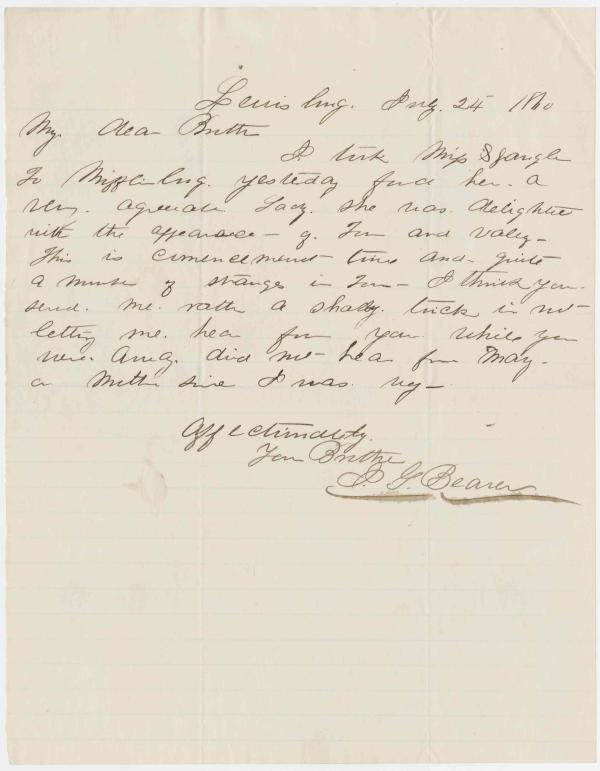 Lewisburg. July. 24 1860
My. dear Brother
I. took Miss Spangler
To Mifflinburg. yesterday find her. a
very. agreeable Lady. she was. delighted
with the appearance - of. Town and Valley -
This is commencement - time and quite
a number of strangers in Town - I think you.
send. me. rather a shabby. trick in not -
letting me. hear from you. while you
were. away. did not - hear from May.
or Mother since I was. up -
Affectionately.
Your Brother
J. G. Beaver